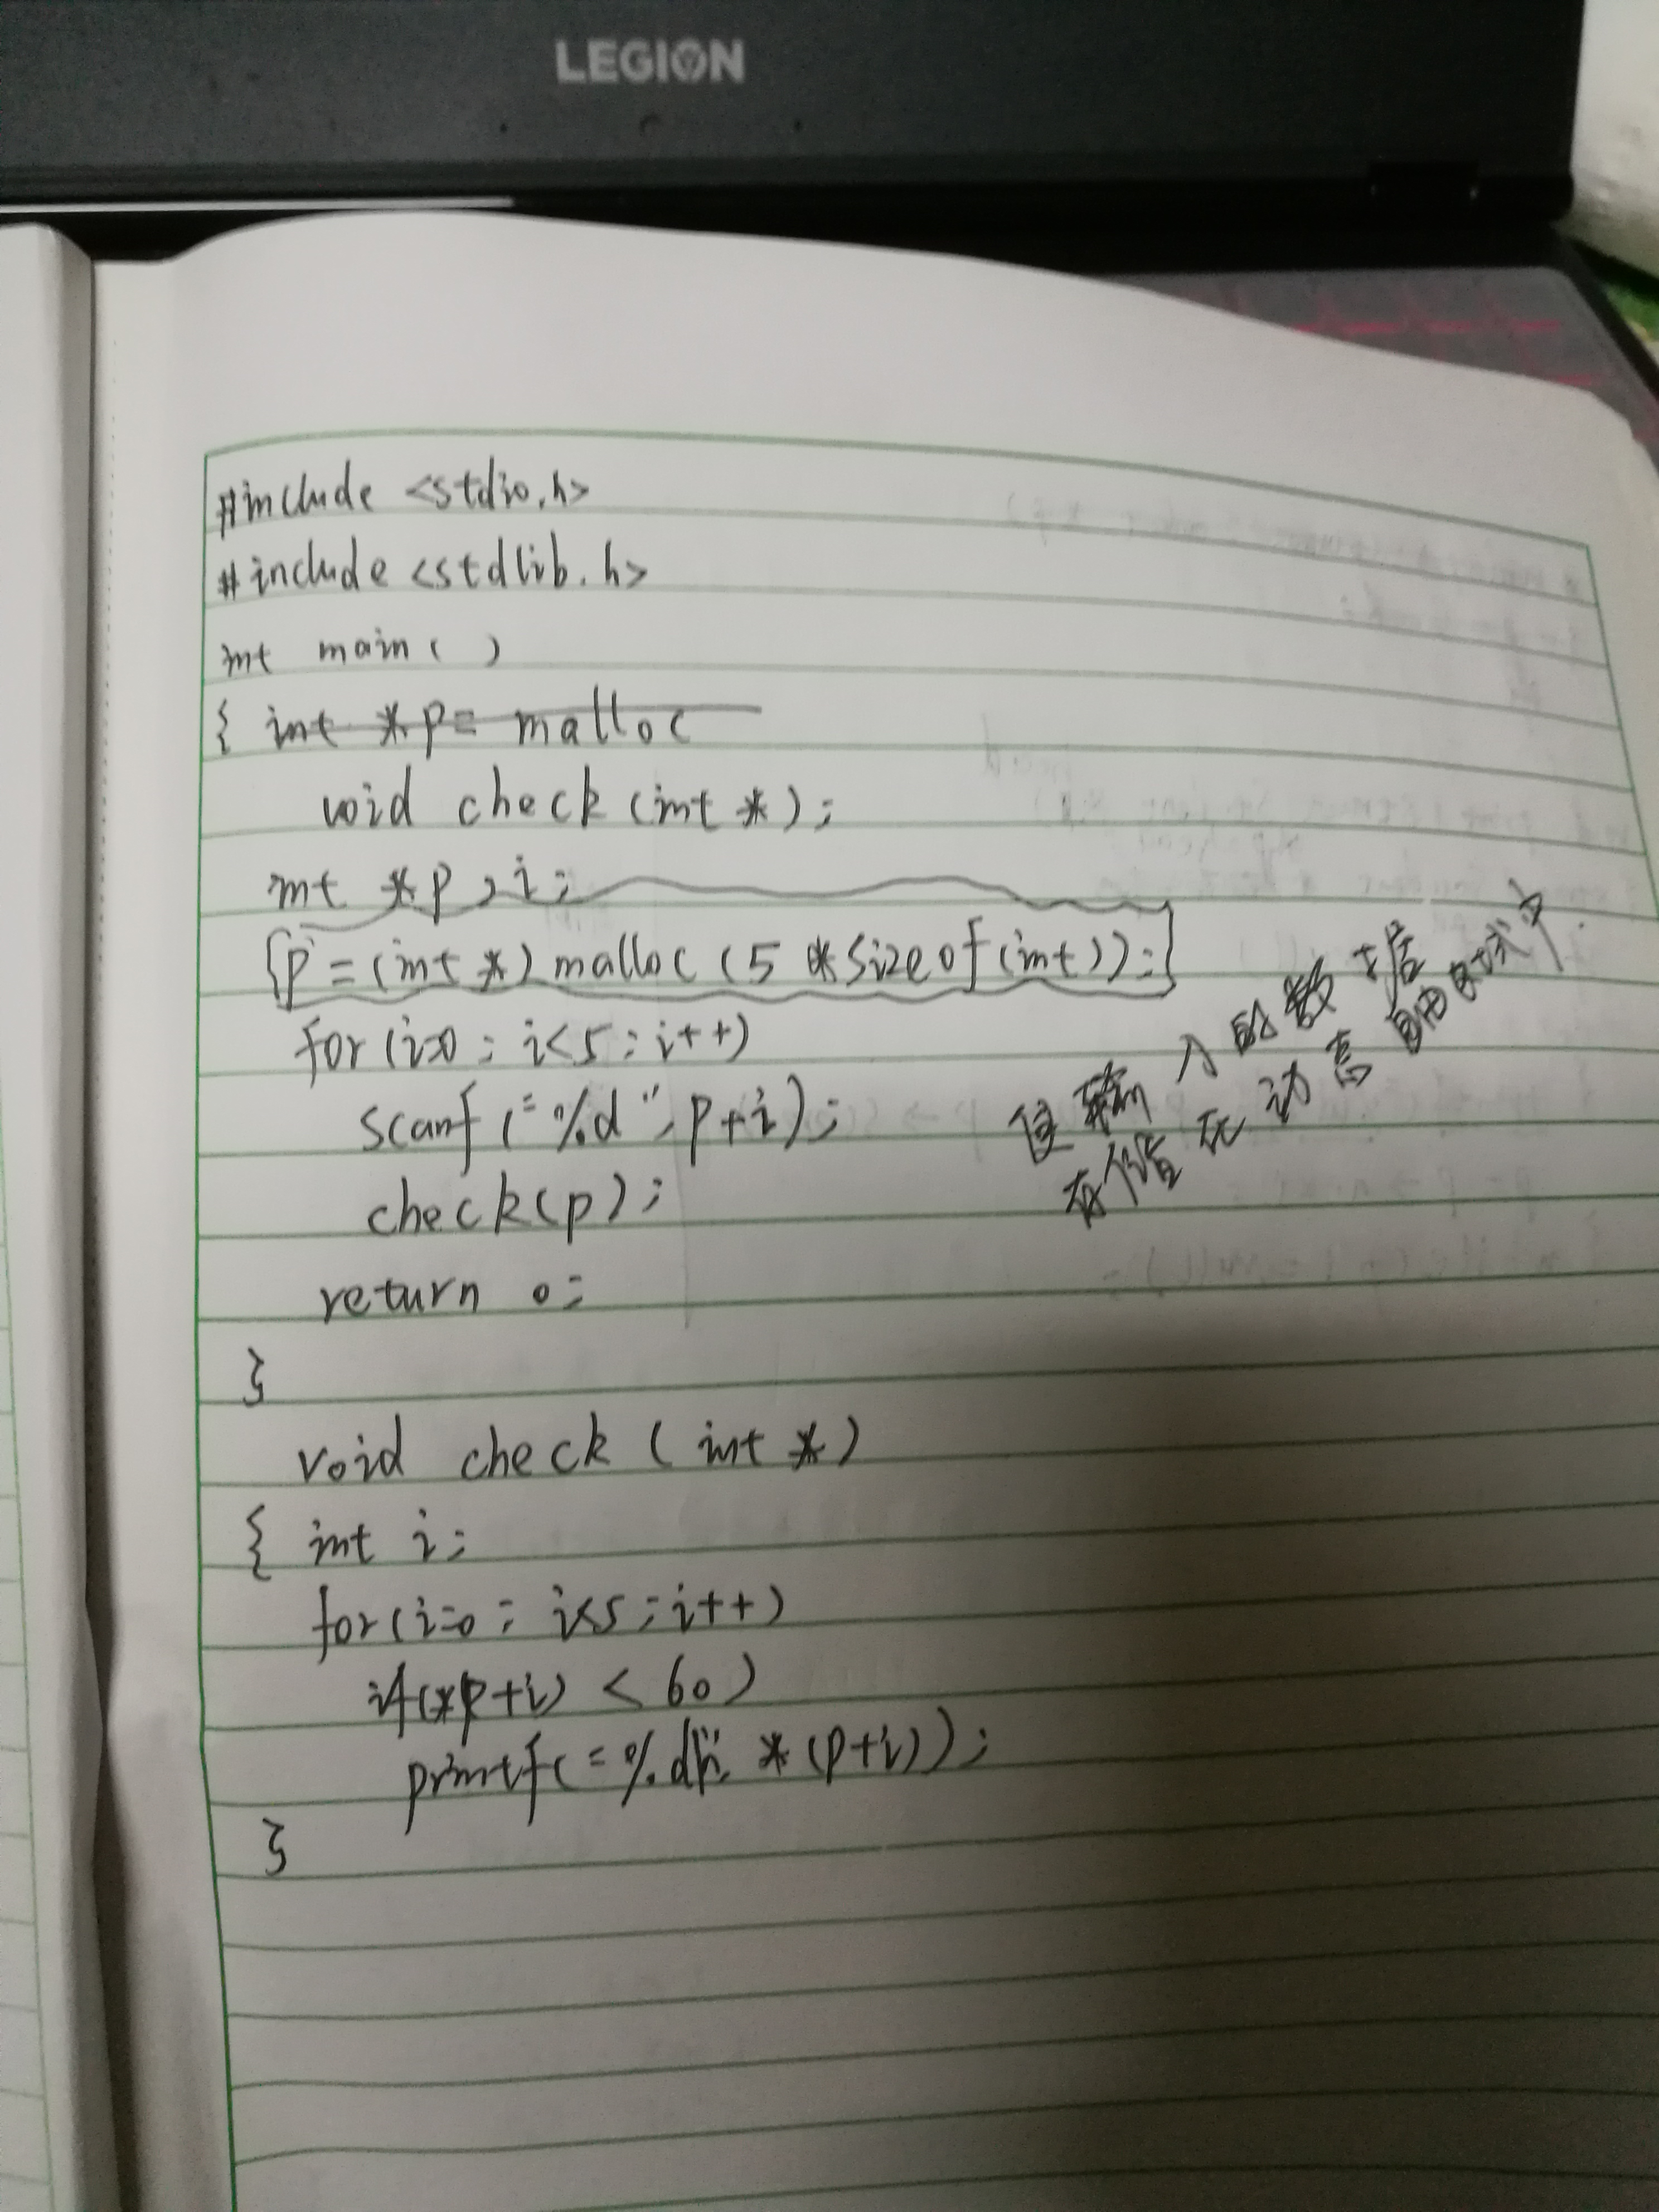 LEGION
#include <stdio.h>
#include <stdlib.h>
int main( )
{ int *p= malloc
void check(int *);
int *p,i;
p=(int *)malloc(5 *sizeof(int));
for(i=0;i<5;i++)
scanf("%d",p+i);
check(p);
return 0;
}
使输入的数据
存储在动态自由域中.
void check(int *)
{ int i;
for(i=0;i<5;i++)
if(*p+i) < 60)
printf("%d\n", *(p+i));
}